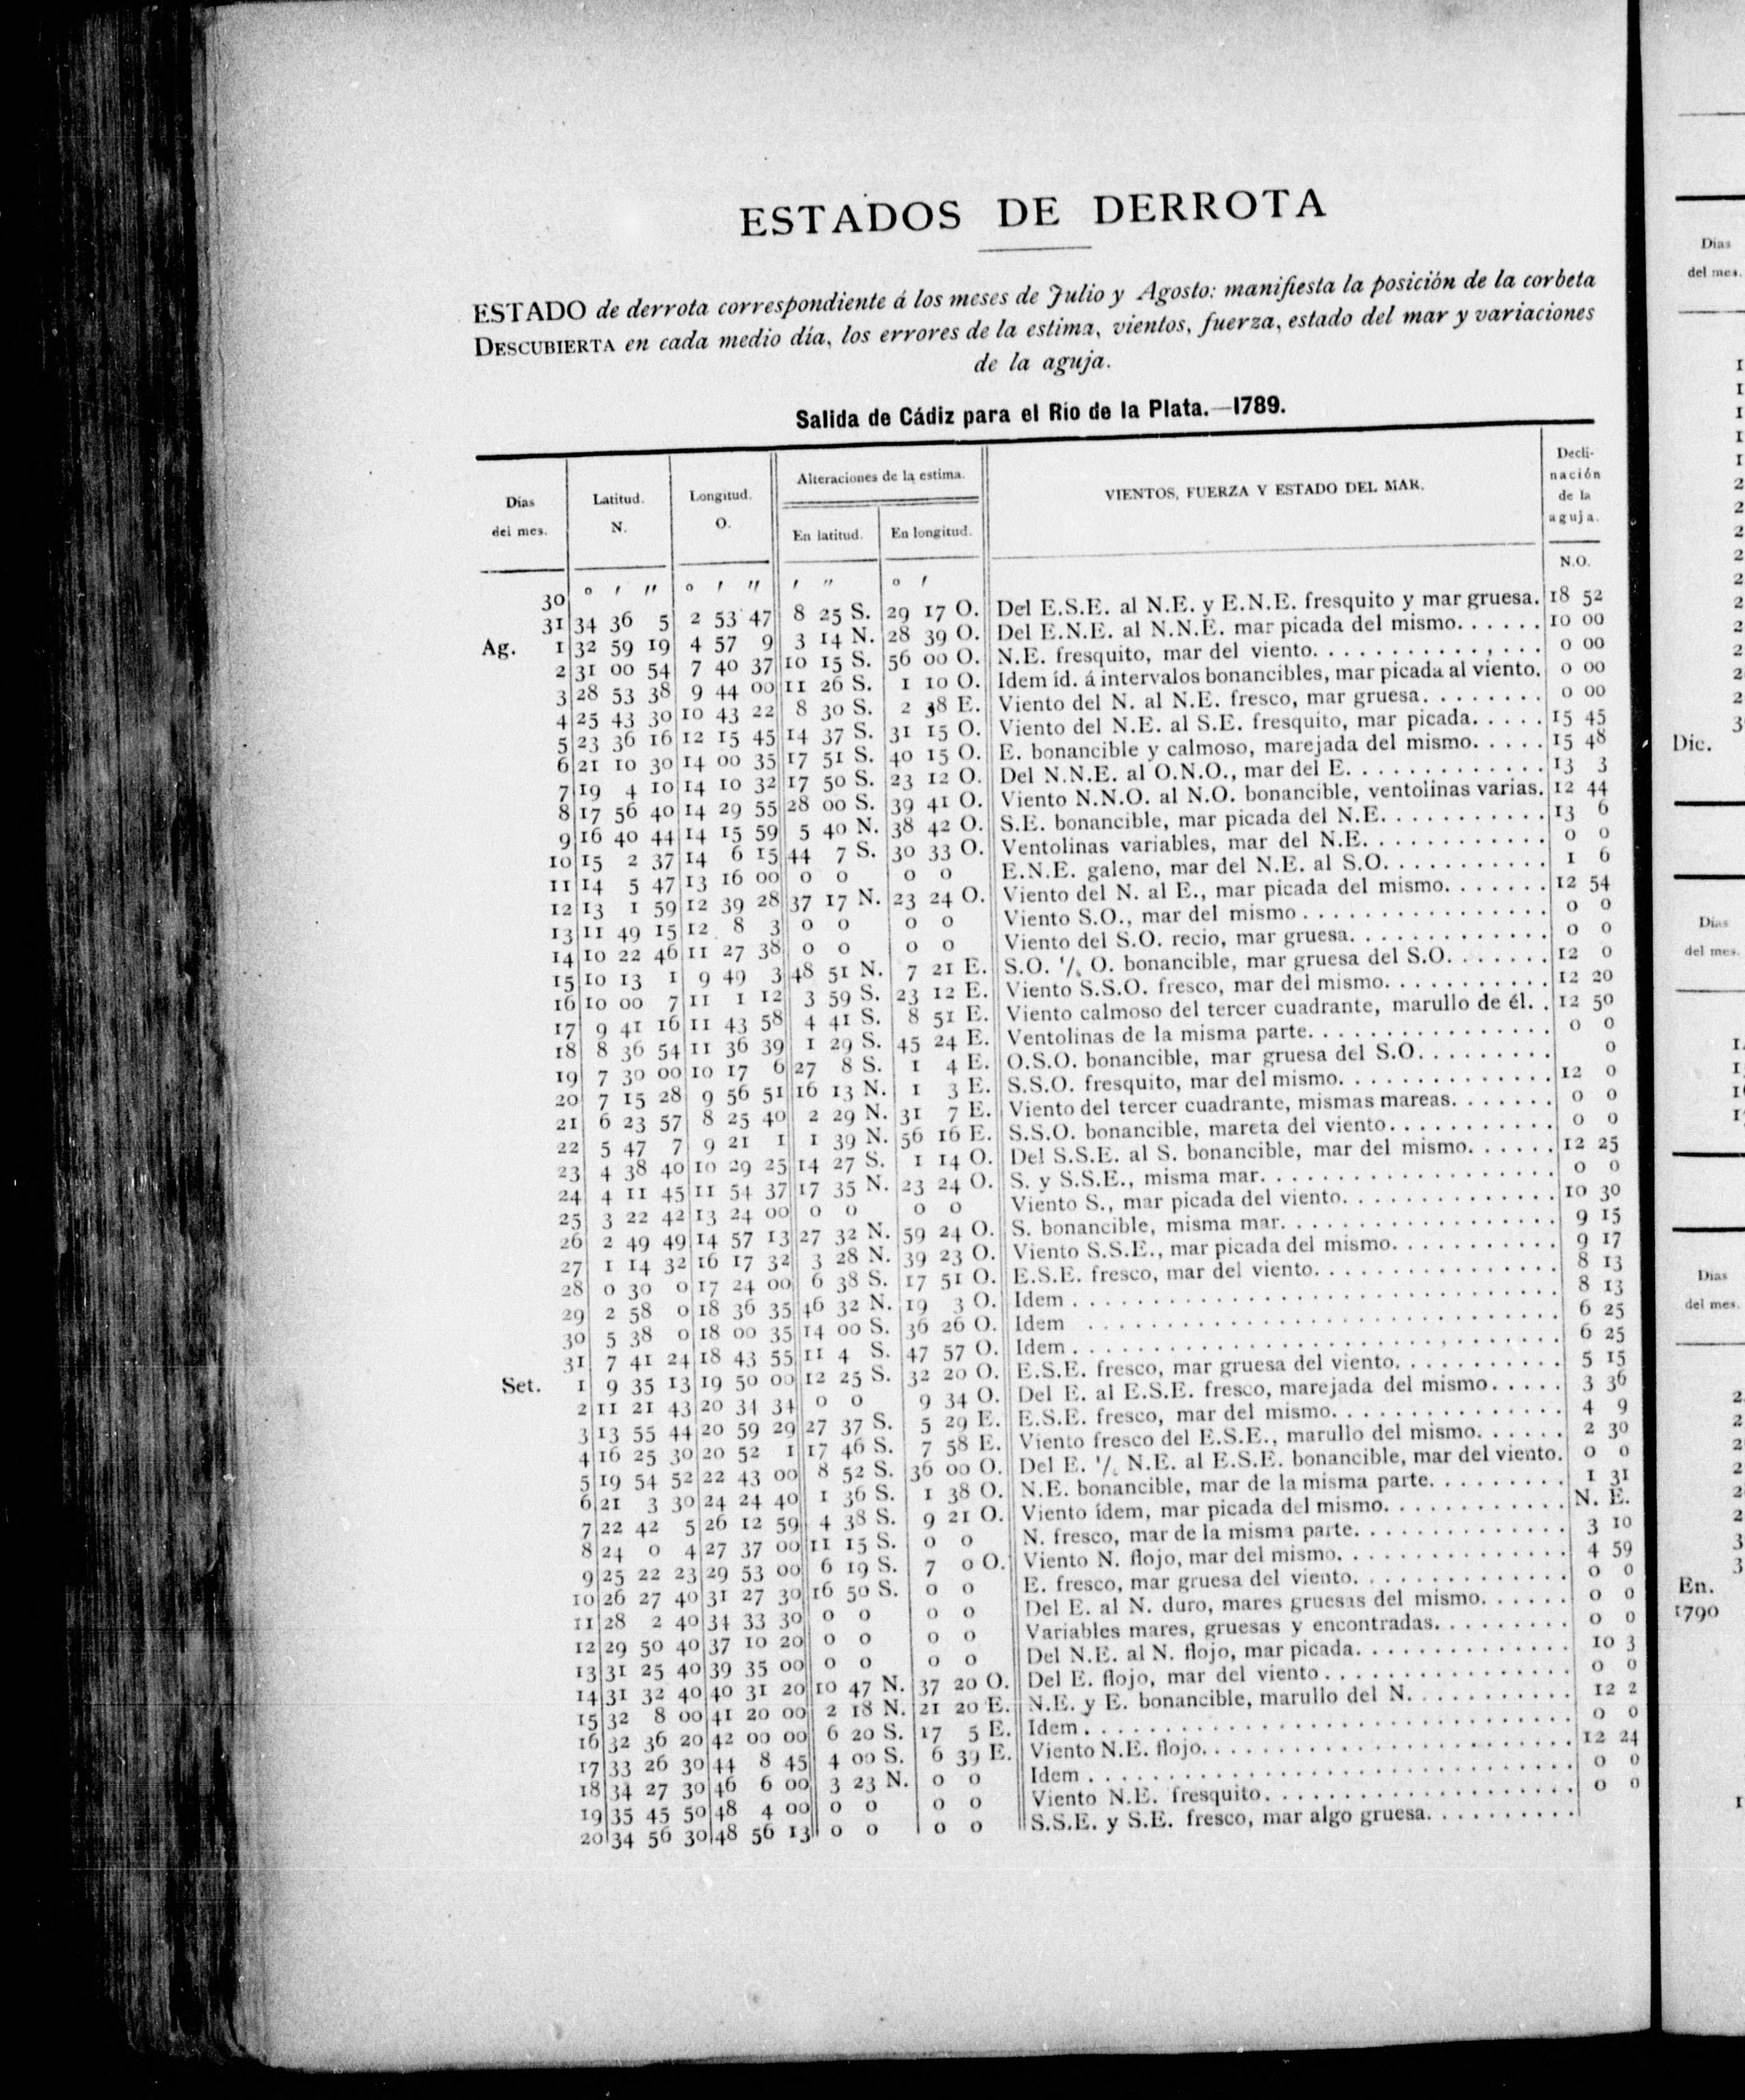 ESTADOS DE DERROTA
ESTADO de derrota correspondiente á los meses de Julio y Agosto: manifiesta la posición de la corbeta
DESCUBIERTA en cada medio día, los errores de la estima, vientos, fuerza, estado del mar y variaciones
de la aguja.
Salida de Cádiz para el Río de la Plata.—1789.
Días del mes. Latitud. N. Longitud. O. Alteraciones de la estima. En latitud. En longitud. VIENTOS, FUERZA Y ESTADO DEL MAR. Declinación de la aguja. N.O.
° ' " ° ' " ' " ° '
30
31 34 36 5 2 53 47 8 25 S. 29 17 O. Del E.S.E. al N.E. y E.N.E. fresquito y mar gruesa. 18 52
Ag. 1 32 59 19 4 57 9 3 14 N. 28 39 O. Del E.N.E. al N.N.E. mar picada del mismo...... 10 00
2 31 00 54 7 40 37 10 15 S. 56 00 O. N.E. fresquito, mar del viento............... 0 00
3 28 53 38 9 44 00 11 26 S. 1 10 O. Idem íd. á intervalos bonancibles, mar picada al viento. 0 00
4 25 43 30 10 43 22 8 30 S. 2 38 E. Viento del N. al N.E. fresco, mar gruesa........ 0 00
5 23 36 16 12 15 45 14 37 S. 31 15 O. Viento del N.E. al S.E. fresquito, mar picada..... 15 45
6 21 10 30 14 00 35 17 51 S. 40 15 O. E. bonancible y calmoso, marejada del mismo..... 15 48
7 19 4 10 14 10 32 17 50 S. 23 12 O. Del N.N.E. al O.N.O., mar del E............. 13 3
8 17 56 40 14 29 55 28 00 S. 39 41 O. Viento N.N.O. al N.O. bonancible, ventolinas varias. 12 44
9 16 40 44 14 15 59 5 40 N. 38 42 O. S.E. bonancible, mar picada del N.E........... 13 6
10 15 2 37 14 6 15 44 7 S. 30 33 O. Ventolinas variables, mar del N.E............ 0 0
11 14 5 47 13 16 00 0 0 0 0 E.N.E. galeno, mar del N.E. al S.O........... 1 6
12 13 1 59 12 39 28 37 17 N. 23 24 O. Viento del N. al E., mar picada del mismo....... 12 54
13 11 49 15 12 8 3 0 0 0 0 Viento S.O., mar del mismo................ 0 0
14 10 22 46 11 27 38 0 0 0 0 Viento del S.O. recio, mar gruesa............. 0 0
15 10 13 1 9 49 3 48 51 N. 7 21 E. S.O. ¼ O. bonancible, mar gruesa del S.O....... 12 0
16 10 00 7 11 1 12 3 59 S. 23 12 E. Viento S.S.O. fresco, mar del mismo........... 12 20
17 9 41 16 11 43 58 4 41 S. 8 51 E. Viento calmoso del tercer cuadrante, marullo de él. . 12 50
18 8 36 54 11 36 39 1 29 S. 45 24 E. Ventolinas de la misma parte................ 0 0
19 7 30 00 10 17 6 27 8 S. 1 4 E. O.S.O. bonancible, mar gruesa del S.O......... 0
20 7 15 28 9 56 51 16 13 N. 1 3 E. S.S.O. fresquito, mar del mismo.............. 12 0
21 6 23 57 8 25 40 2 29 N. 31 7 E. Viento del tercer cuadrante, mismas mareas....... 0 0
22 5 47 7 9 21 1 1 39 N. 56 16 E. S.S.O. bonancible, mareta del viento........... 0 0
23 4 38 40 10 29 25 14 27 S. 1 14 O. Del S.S.E. al S. bonancible, mar del mismo...... 12 25
24 4 11 45 11 54 37 17 35 N. 23 24 O. S. y S.S.E., misma mar................... 0 0
25 3 22 42 13 24 00 0 0 0 0 Viento S., mar picada del viento.............. 10 30
26 2 49 49 14 57 13 27 32 N. 59 24 O. S. bonancible, misma mar.................. 9 15
27 1 14 32 16 17 32 3 28 N. 39 23 O. Viento S.S.E., mar picada del mismo........... 9 17
28 0 30 0 17 24 00 6 38 S. 17 51 O. E.S.E. fresco, mar del viento................ 8 13
29 2 58 0 18 36 35 46 32 N. 19 3 O. Idem............................... 8 13
30 5 38 0 18 00 35 14 00 S. 36 26 O. Idem ............................... 6 25
31 7 41 24 18 43 55 11 4 S. 47 57 O. Idem............................... 6 25
Set. 1 9 35 13 19 50 00 12 25 S. 32 20 O. E.S.E. fresco, mar gruesa del viento........... 5 15
2 11 21 43 20 34 34 0 0 9 34 O. Del E. al E.S.E. fresco, marejada del mismo..... 3 36
3 13 55 44 20 59 29 27 37 S. 5 29 E. E.S.E. fresco, mar del mismo............... 4 9
4 16 25 30 20 52 1 17 46 S. 7 58 E. Viento fresco del E.S.E., marullo del mismo...... 2 30
5 19 54 52 22 43 00 8 52 S. 36 00 O. Del E. ¼ N.E. al E.S.E. bonancible, mar del viento. 0 0
6 21 3 30 24 24 40 1 36 S. 1 38 O. N.E. bonancible, mar de la misma parte......... 1 31
7 22 42 5 26 12 59 4 38 S. 9 21 O. Viento ídem, mar picada del mismo............ N. E.
8 24 0 4 27 37 00 11 15 S. 0 0 N. fresco, mar de la misma parte.............. 3 10
9 25 22 23 29 53 00 6 19 S. 7 0 O. Viento N. flojo, mar del mismo............... 4 59
10 26 27 40 31 27 30 16 50 S. 0 0 E. fresco, mar gruesa del viento.............. 0 0
11 28 2 40 34 33 30 0 0 0 0 Del E. al N. duro, mares gruesas del mismo...... 0 0
12 29 50 40 37 10 20 0 0 0 0 Variables mares, gruesas y encontradas......... 0 0
13 31 25 40 39 35 00 0 0 0 0 Del N.E. al N. flojo, mar picada.............. 10 3
14 31 32 40 40 31 20 10 47 N. 37 20 O. Del E. flojo, mar del viento................. 0 0
15 32 8 00 41 20 00 2 18 N. 21 20 E. N.E. y E. bonancible, marullo del N........... 12 2
16 32 36 20 42 00 00 6 20 S. 17 5 E. Idem.............................. 0 0
17 33 26 30 44 8 45 4 00 S. 6 39 E. Viento N.E. flojo....................... 12 24
18 34 27 30 46 6 00 3 23 N. 0 0 Idem.............................. 0 0
19 35 45 50 48 4 00 0 0 0 0 Viento N.E. fresquito.................... 0 0
20 34 56 30 48 56 13 0 0 0 0 S.S.E. y S.E. fresco, mar algo gruesa..........
Días
del mes.
Dic.
Días
del mes.
Días
del mes.
En.
1790